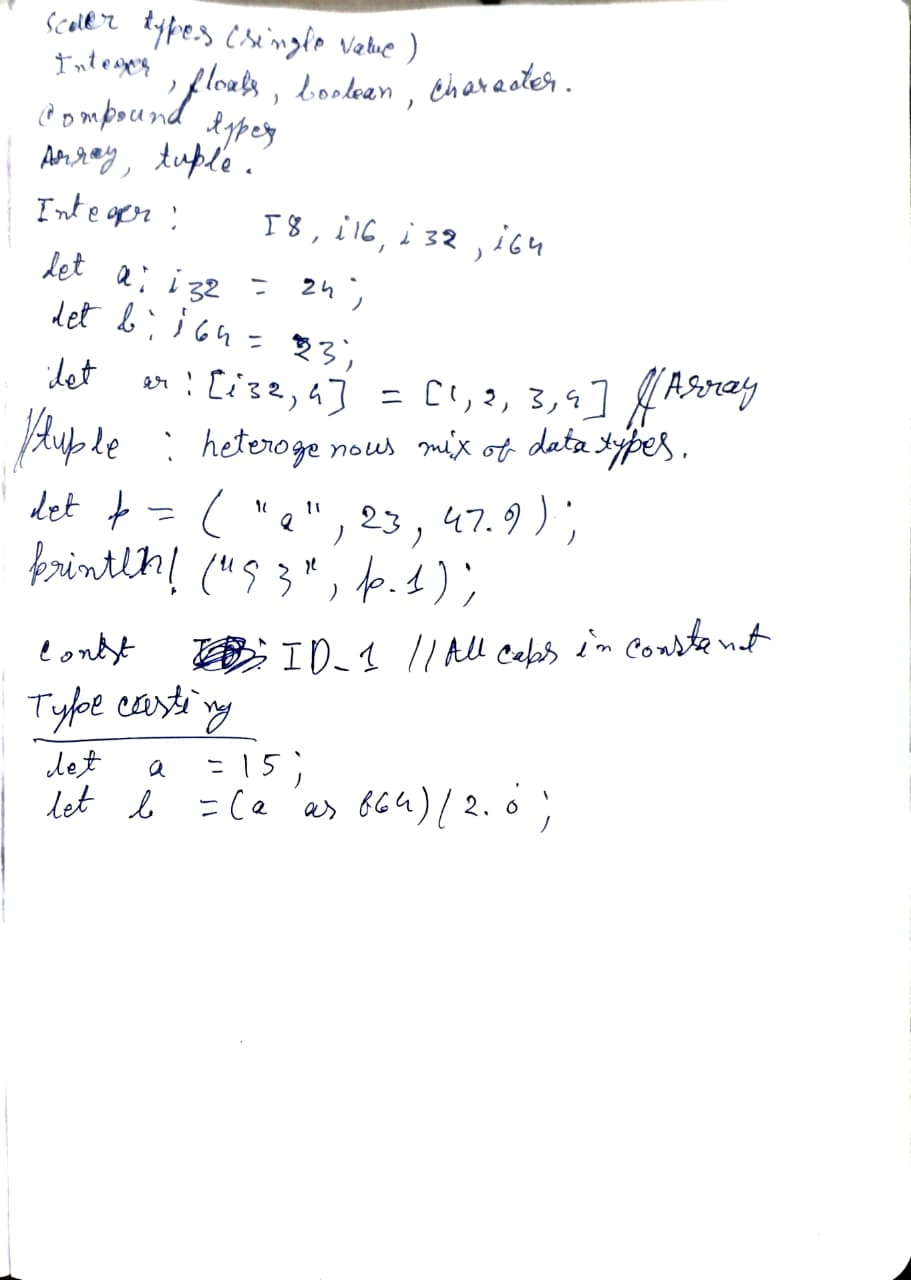 Scaler types (single value)
Integer, floats, boolean, character.
Compound types
Array, tuple.
Integer: I8, i16, i32, i64
let a: i32 = 24;
let b: i64 = 23;
let ar: [i32,4] = [1,2,3,4] //Array
//tuple : heterogenous mix of data types.
let p = ("a", 23, 47.9);
println! ("{}", p.1);
const ID_1 //All caps in constant
Type casting
let a = 15;
let b = (a as f64)/2.0;